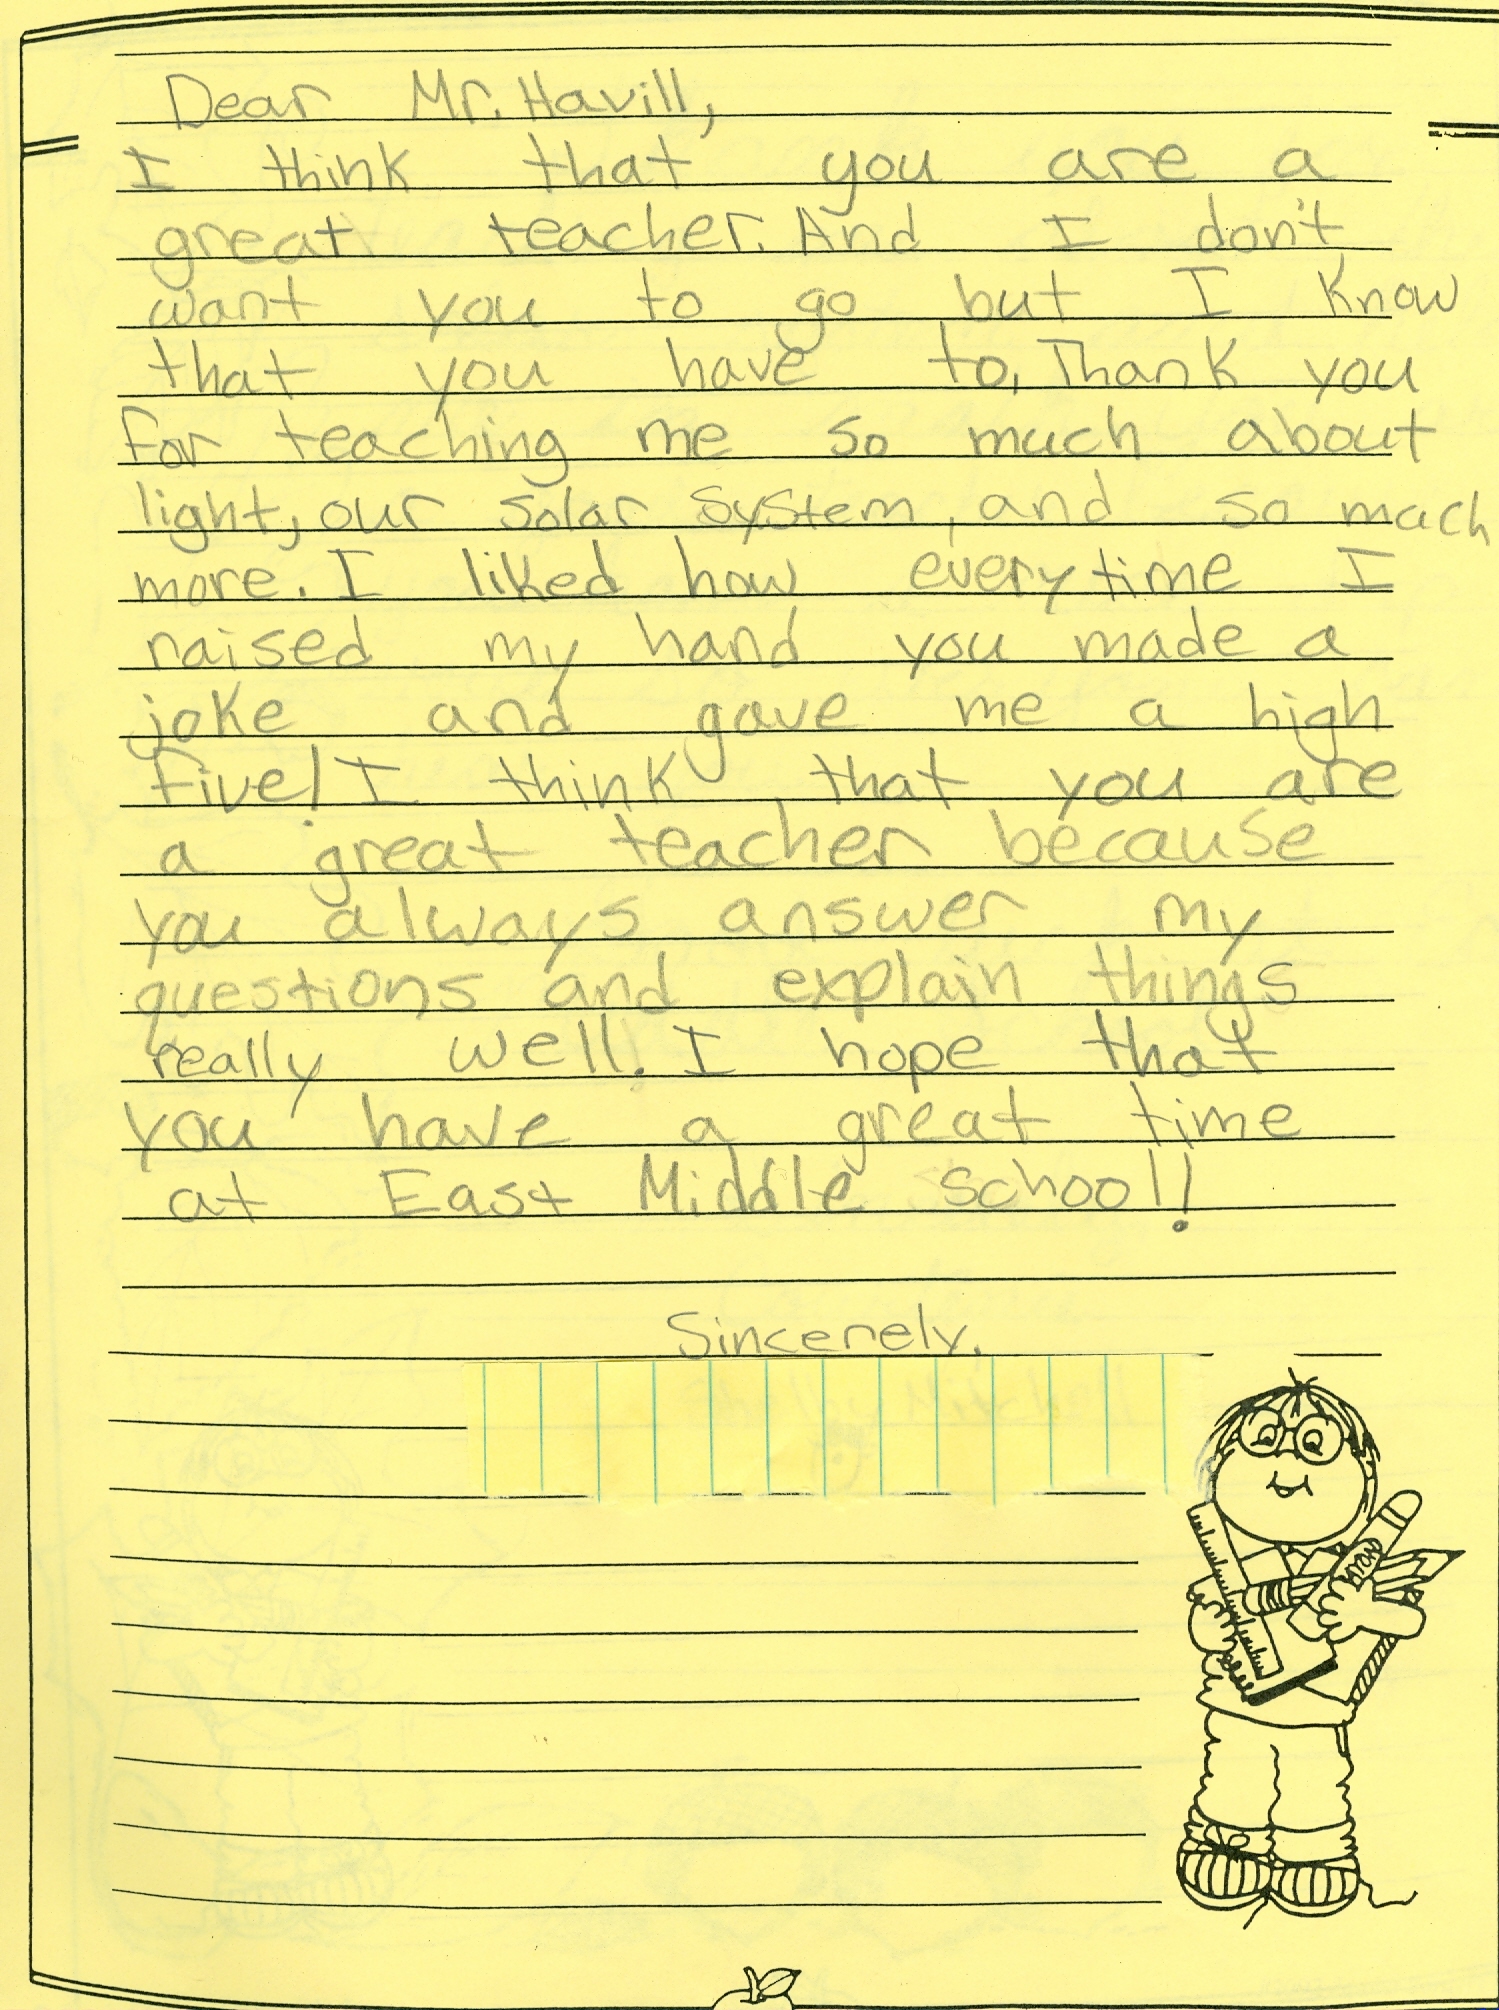 Dear Mr. Havill,
I think that you are a
great teacher. And I don't
want you to go but I know
that you have to. Thank you
for teaching me so much about
light, our solar system, and so much
more. I liked how everytime I
raised my hand you made a
joke and gave me a high
five! I think that you are
a great teacher because
you always answer my
questions and explain things
really well! I hope that
you have a great time
at East Middle school!
Sincerely,